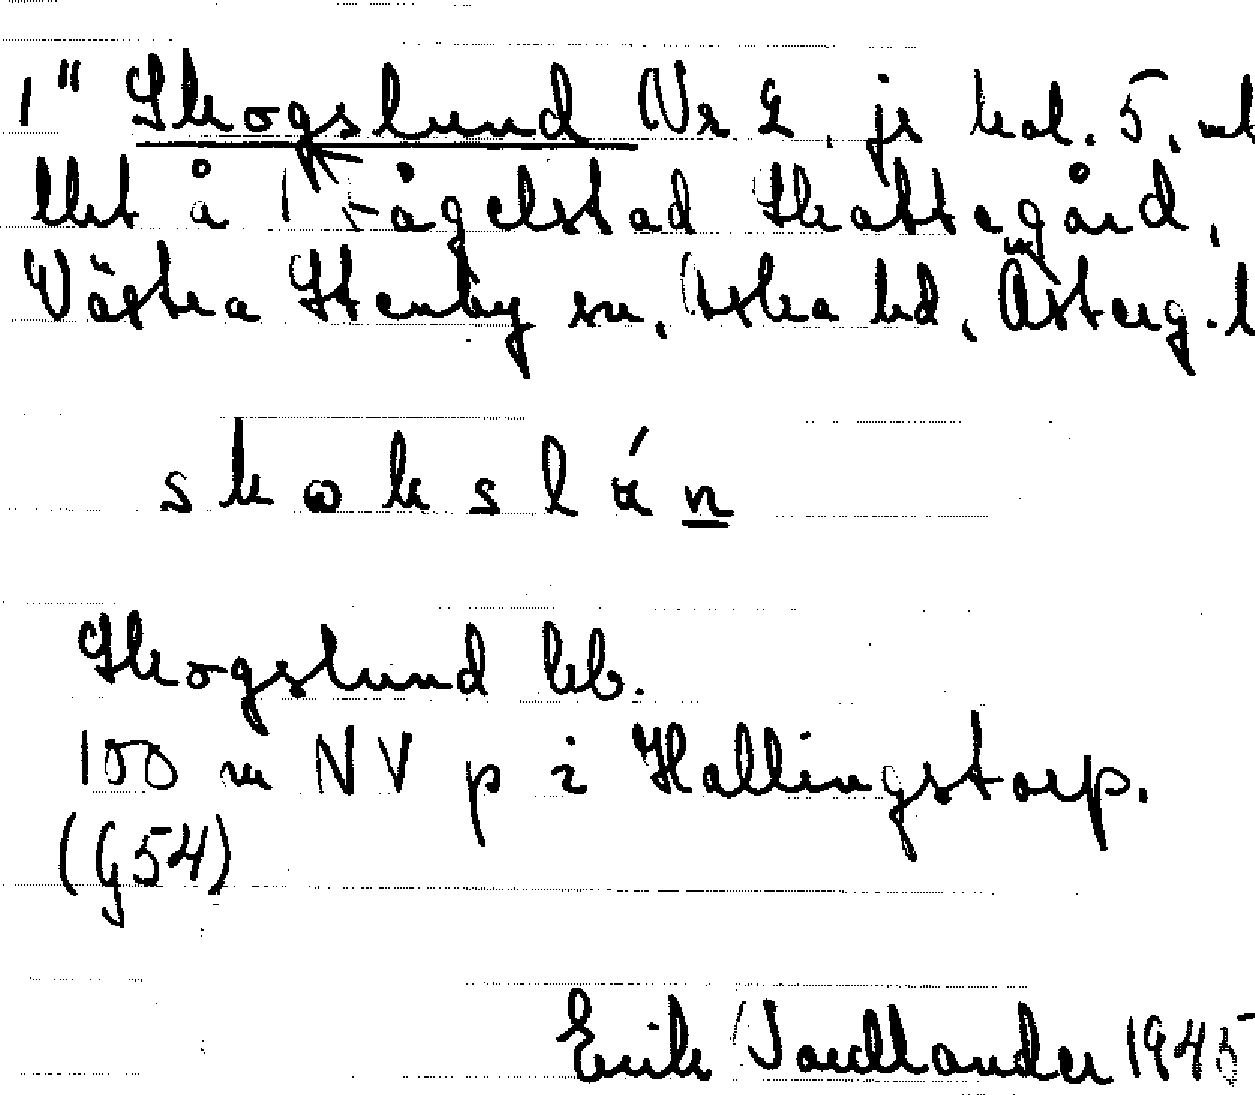 1" Skogslund Nr 2, jr kol. 5, ut
tlet å 1 Fågelstad Skattegård,
Västra Stenby sn, Aska hd, Österg. l
skokslán
Skogslund bb.
100 m NV p i Hallingstorp.
(G54)
Erik 1945